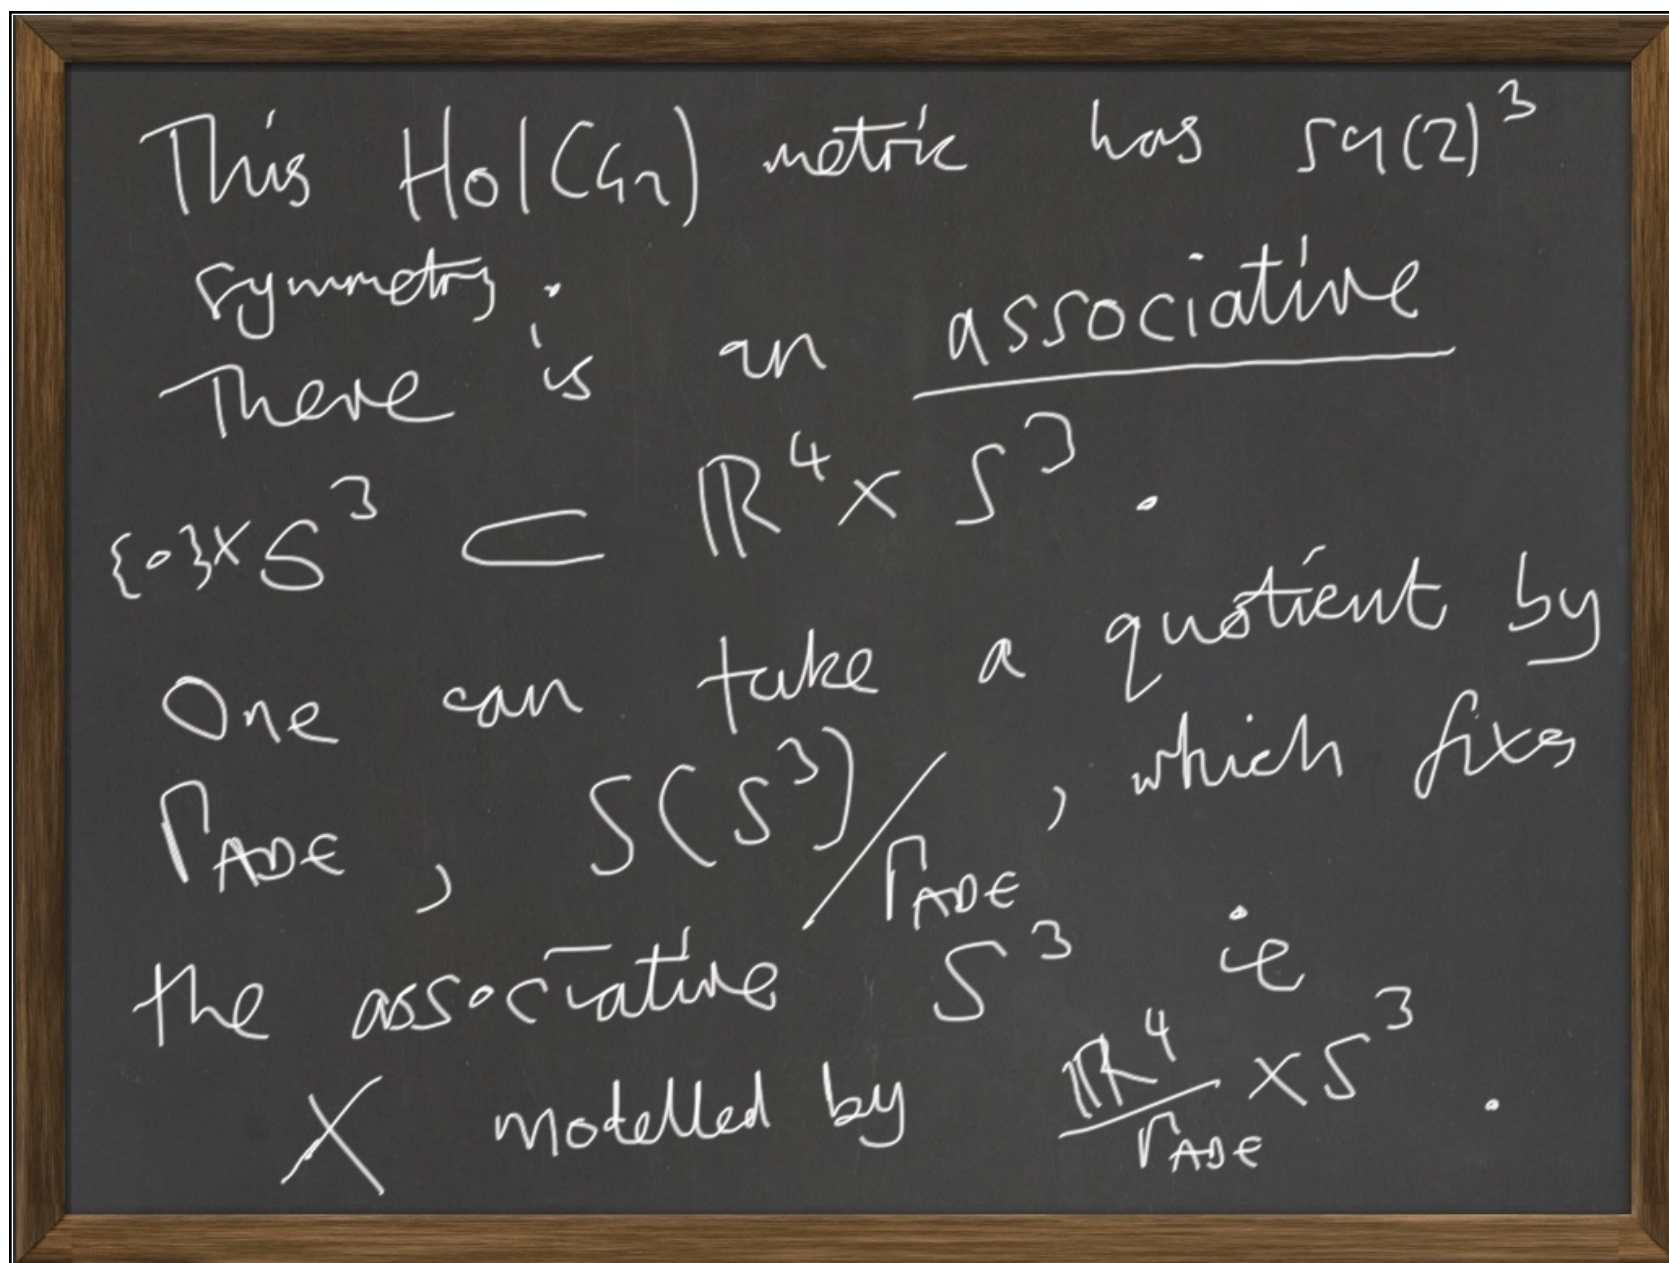 This Hol(G₂) metric has SU(2)³
symmetry.
There is an associative
{0}×S³ ⊂ ℝ⁴×S³.
One can take a quotient by
Γ_ADE, S(S³)/Γ_ADE, which fixes
the associative S³ ie
X modelled by ℝ⁴/Γ_ADE × S³.